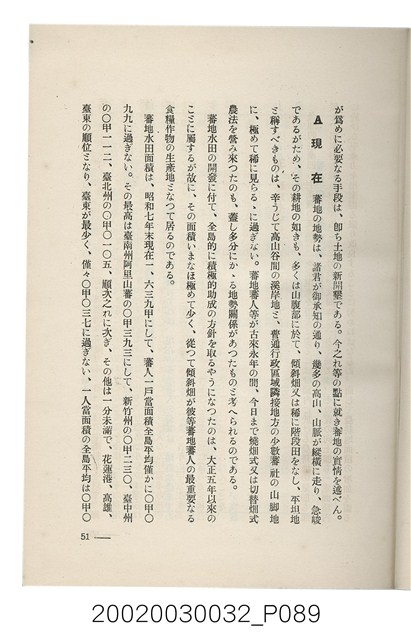 が爲めに必要なる手段は、卽ち土地の新開墾である。今之れ等の點に就き蕃地の實情を述べん。
A 現在 蕃地の地勢は、諸君が御承知の通り、幾多の高山、山脈が縱橫に走り、急峻
であるがため、その耕地の如きも、多くは山腹部に於て、傾斜畑又は稀に階段田をなし、平坦地
と稱すべきものは、辛うじて高山谷間の溪岸地と、普通行政區域隣接地方の少數蕃社の山脚地
に、極めて稀に見らるゝに過ぎない。蕃地蕃人等が古來永年の間、今日まで燒畑式又は切替畑式
農法を營み來つたのも、蓋し多分にかゝる地勢關係があつたものと考へられるのである。
蕃地水田の開發に付て、全島的に積極的助成の方針を取るやうになつたのは、大正五年以來の
ことに屬するが故に、その面積いまなほ極めて少く、從つて傾斜畑が彼等蕃地蕃人の最重要なる
食糧作物の生產地となつて居るのである。
蕃地水田面積は、昭和七年末現在一、六三九甲にして、蕃人一戶當面積全島平均僅かに〇甲〇
九九に過ぎない。その最高は臺南州阿里山蕃の〇甲三九三にして、新竹州の〇甲二三〇、臺中州
の〇甲一一二、臺北州の〇甲一〇五、順次之れに次ぎ、その他は一分未滿で、花蓮港、高雄、
臺東の順位となり、臺東が最少く、僅々〇甲〇三七に過ぎない、一人當面積の全島平均は〇甲〇
51
20020030032_P089